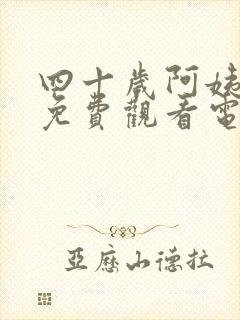 四十歲阿姨
免費觀看電
亞歷山德拉